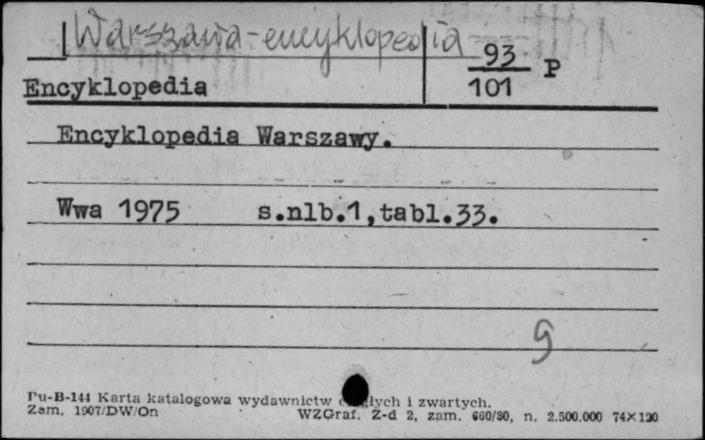 Warszawa-encyklopedia
93
101 P
Encyklopedia
Encyklopedia Warszawy.
Wwa 1975 s.nlb.1,tabl.33.
g
Pu-B-144 Karta katalogowa wydawnictw i zwartych.
Zam. 1907/DW/On WZGraf. Z-d 2, zam. 660/80, n. 2.500.000 74×120